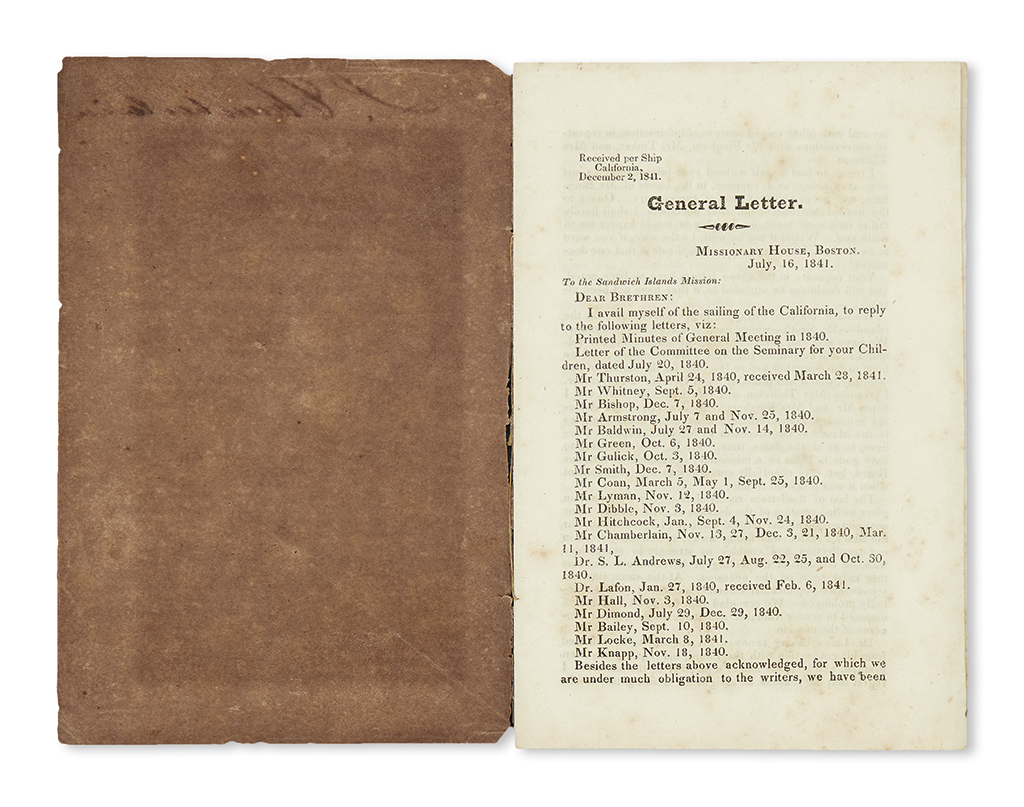 Received per Ship
California,
December 2, 1841.
General Letter.
Missionary House, Boston.
July, 16, 1841.
To the Sandwich Islands Mission:
Dear Brethren:
I avail myself of the sailing of the California, to reply
to the following letters, viz:
Printed Minutes of General Meeting in 1840.
Letter of the Committee on the Seminary for your Chil-
dren, dated July 20, 1840.
Mr Thurston, April 24, 1840, received March 28, 1841.
Mr Whitney, Sept. 5, 1840.
Mr Bishop, Dec. 7, 1840.
Mr Armstrong, July 7 and Nov. 25, 1840.
Mr Baldwin, July 27 and Nov. 14, 1840.
Mr Green, Oct. 6, 1840.
Mr Gulick, Oct. 3, 1840.
Mr Smith, Dec. 7, 1840.
Mr Coan, March 5, May 1, Sept. 25, 1840.
Mr Lyman, Nov. 12, 1840.
Mr Dibble, Nov. 3, 1840.
Mr Hitchcock, Jan., Sept. 4, Nov. 24, 1840.
Mr Chamberlain, Nov. 13, 27, Dec. 3, 21, 1840, Mar.
11, 1841,
Dr. S. L. Andrews, July 27, Aug. 22, 25, and Oct. 30,
1840.
Dr. Lafon, Jan. 27, 1840, received Feb. 6, 1841.
Mr Hall, Nov. 3, 1840.
Mr Dimond, July 29, Dec. 29, 1840.
Mr Bailey, Sept. 10, 1840.
Mr Locke, March 8, 1841.
Mr Knapp, Nov. 18, 1840.
Besides the letters above acknowledged, for which we
are under much obligation to the writers, we have been